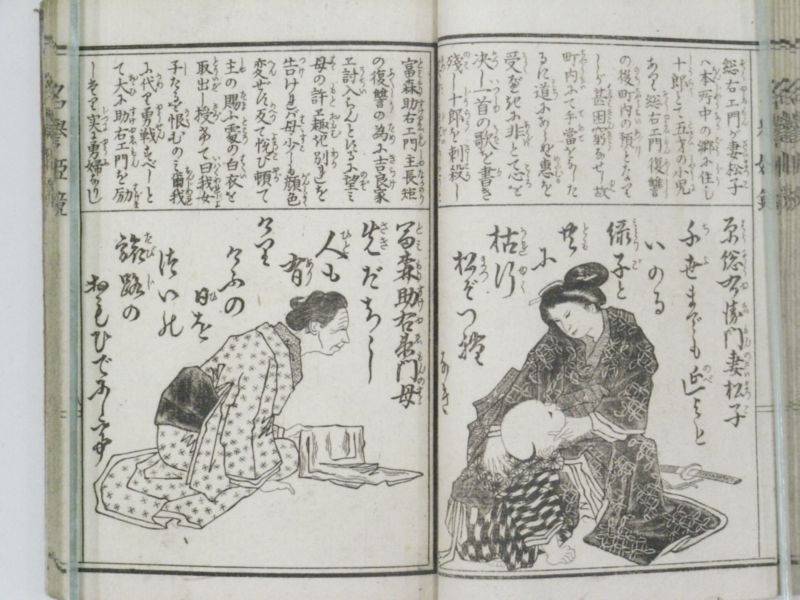 総右エ門が妻松子
ハ本所中の郷に住し
十郎とて五才の小児
あり総右エ門復讐
の後町内の預となつて
しが甚困窮なせし故
町内にて手當をなした
るに道にあらぬ恵を
受るは非と心を
決し一首の歌を書き
残し十郎を刺殺し
原総右衛門妻松子
千世までも延よと
いのる
緑子と
共
に
枯行
松ぞ
富森助右エ門主長矩
の復讐の為に吉良家
エ討入らんとするに望ミ
母の許エ趣記別を
告けれバ母少しも顔色
変せず反て悦び頓て
主の賜ふ處の白衣を
取出し授あて曰我女
子たるを恨むのミ爾我
に代て勇戦すべしと
て大に助右エ門を励
しそり実に勇婦なりし
冨森助右衛門母
先だちし
人も
有
けり
けふの
日を
つひの
旅路の
おもひで
名誉姫鏡